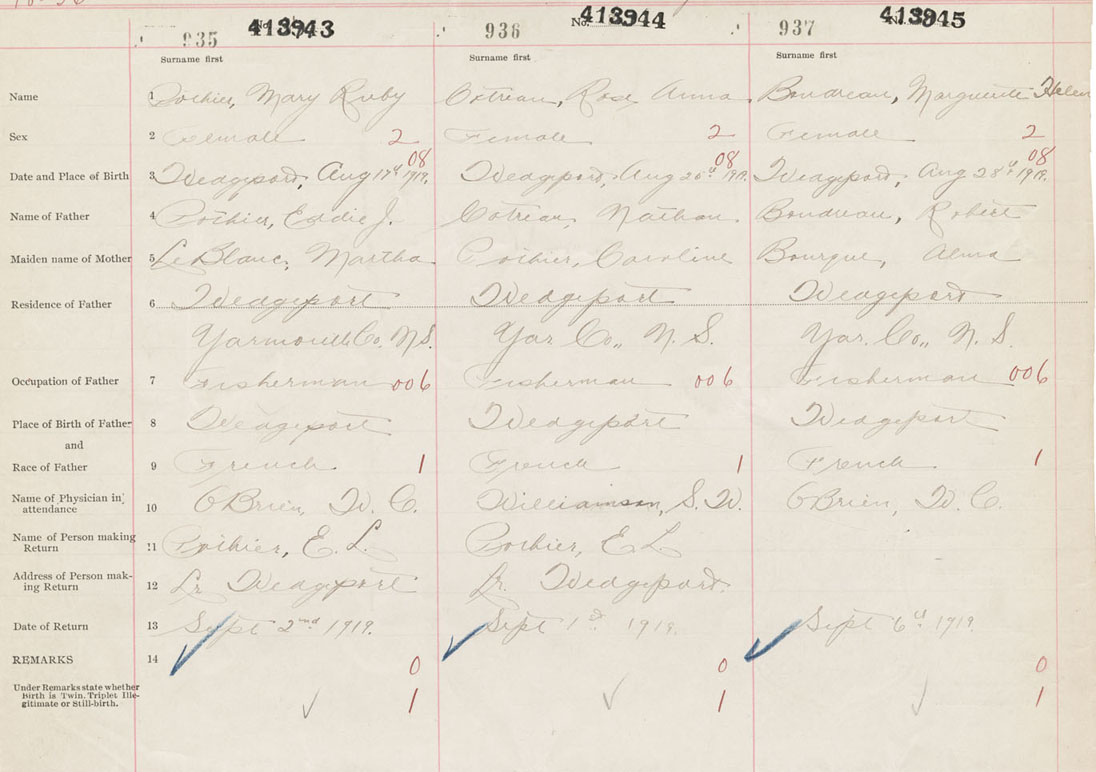 935 413943 936 413944 937 413945
No. No. No.
Surname first Surname first Surname first
Name 1 Pothier, Mary Ruby Cotreau, Rose Anna Boudreau, Marguerite Helen
Sex 2 Female 2 Female 2 Female 2
08 08 08
Date and Place of Birth 3 Wedgeport, Aug 17th 1919. Wedgeport, Aug 26th 1919. Wedgeport, Aug 28th 1919.
Name of Father 4 Pothier, Eddie J. Cotreau, Nathan Boudreau, Robert
Maiden name of Mother 5 LeBlanc, Martha Pothier, Caroline Bourque, Alma
Residence of Father 6 Wedgeport Wedgeport Wedgeport
Yarmouth Co. N.S. Yar Co., N.S. Yar. Co., N.S.
Occupation of Father 7 Fisherman 006 Fisherman 006 Fisherman 006
Place of Birth of Father 8 Wedgeport Wedgeport Wedgeport
and
Race of Father 9 French 1 French 1 French 1
Name of Physician in attendance 10 O'Brien, W. C. Williamson, S. W. O'Brien, W. C.
Name of Person making Return 11 Pothier, E. L. Pothier, E L
Address of Person making Return 12 Lr Wedgeport Lr. Wedgeport.
Date of Return 13 Sept 2nd 1919. Sept 1st 1919. Sept 6th 1919
REMARKS 14 0 0 0
Under Remarks state whether
Birth is Twin, Triplet Ille- 1 1 1
gitimate or Still-birth.